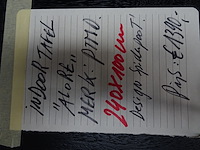 INDOOR TAFEL
"ALORE"
MERK: PTMD.
240x100cm
Design Spiderpoot!
Prijs: € 1390,-